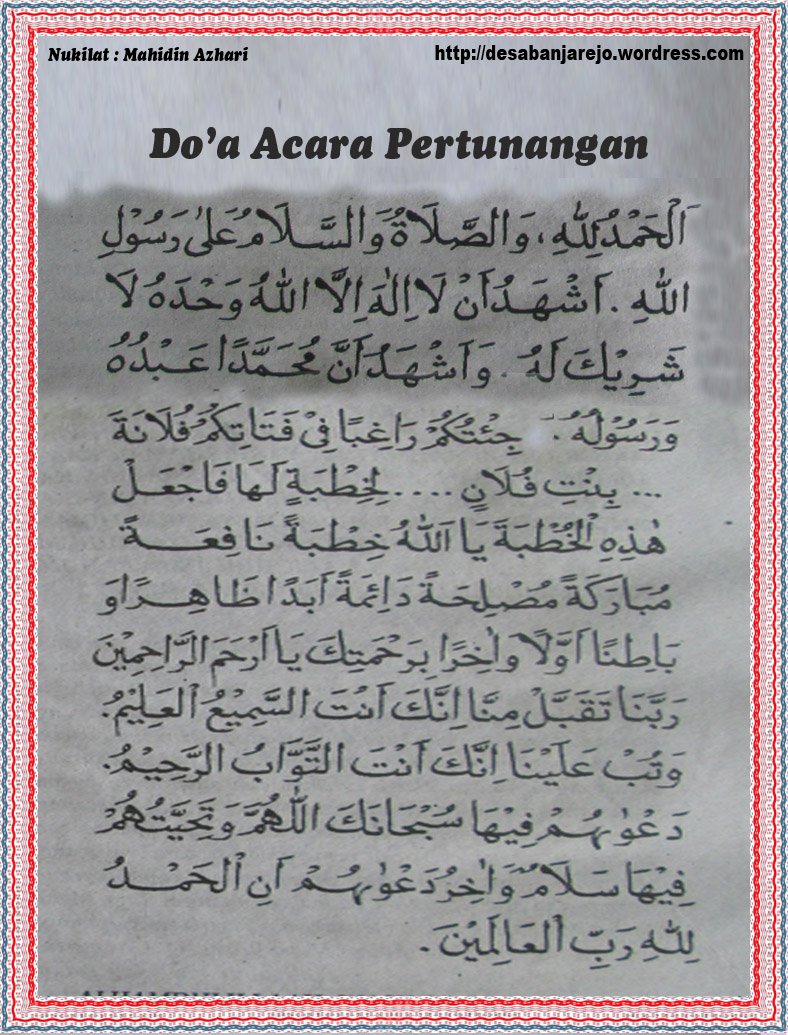 Nukilat : Mahidin Azhari
http://desabanjarejo.wordpress.com
Do'a Acara Pertunangan
اَلْحَمْدُلِلّٰهِ، وَالصَّلَاةُ وَالسَّلَامُ عَلٰى رَسُوْلِ
اللّٰهِ . اَشْهَدُ اَنْ لَا اِلٰهَ اِلَّا اللّٰهُ وَحْدَهُ لَا
شَرِيْكَ لَهُ . وَاَشْهَدُ اَنَّ مُحَمَّدًا عَبْدُهُ
وَرَسُوْلُهُ . جِئْتُكُمْ رَاغِبًا فِيْ فَتَاتِكُمْ فُلَانَةَ
... بِنْتِ فُلَانٍ .... لِخِطْبَةٍ لَهَا فَاجْعَلْ
هٰذِهِ الْخُطْبَةَ يَا اَللّٰهُ خِطْبَةً نَافِعَةً
مُبَارَكَةً مُصْلِحَةً دَائِمَةً اَبَدًا ظَاهِرًا وَ
بَاطِنًا اَوَّلًا وَاٰخِرًا بِرَحْمَتِكَ يَا اَرْحَمَ الرَّاحِمِيْنَ
رَبَّنَا تَقَبَّلْ مِنَّا اِنَّكَ اَنْتَ السَّمِيْعُ الْعَلِيْمُ.
وَتُبْ عَلَيْنَا اِنَّكَ اَنْتَ التَّوَّابُ الرَّحِيْمُ.
دَعْوٰىهُمْ فِيْهَا سُبْحَانَكَ اللّٰهُمَّ وَتَحِيَّتُهُمْ
فِيْهَا سَلَامٌ وَاٰخِرُ دَعْوٰىهُمْ اَنِ الْحَمْدُ
لِلّٰهِ رَبِّ الْعَالَمِيْنَ .